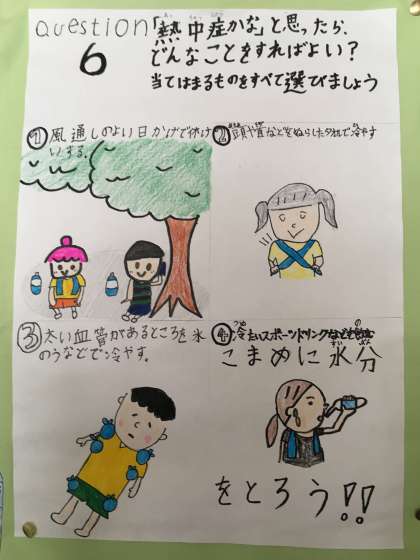 Question 6
「熱中症かな」と思ったら、
どんなことをすればよい?
当てはまるものをすべて選びましょう
① 風通しのよい日かげで休け
いする。
② 頭や首などをぬらしたタオルで冷やす
③ 太い血管があるところを氷
のうなどで冷やす。
④ 冷たいスポーツドリンクなどを飲む
こまめに水分
をとろう!!